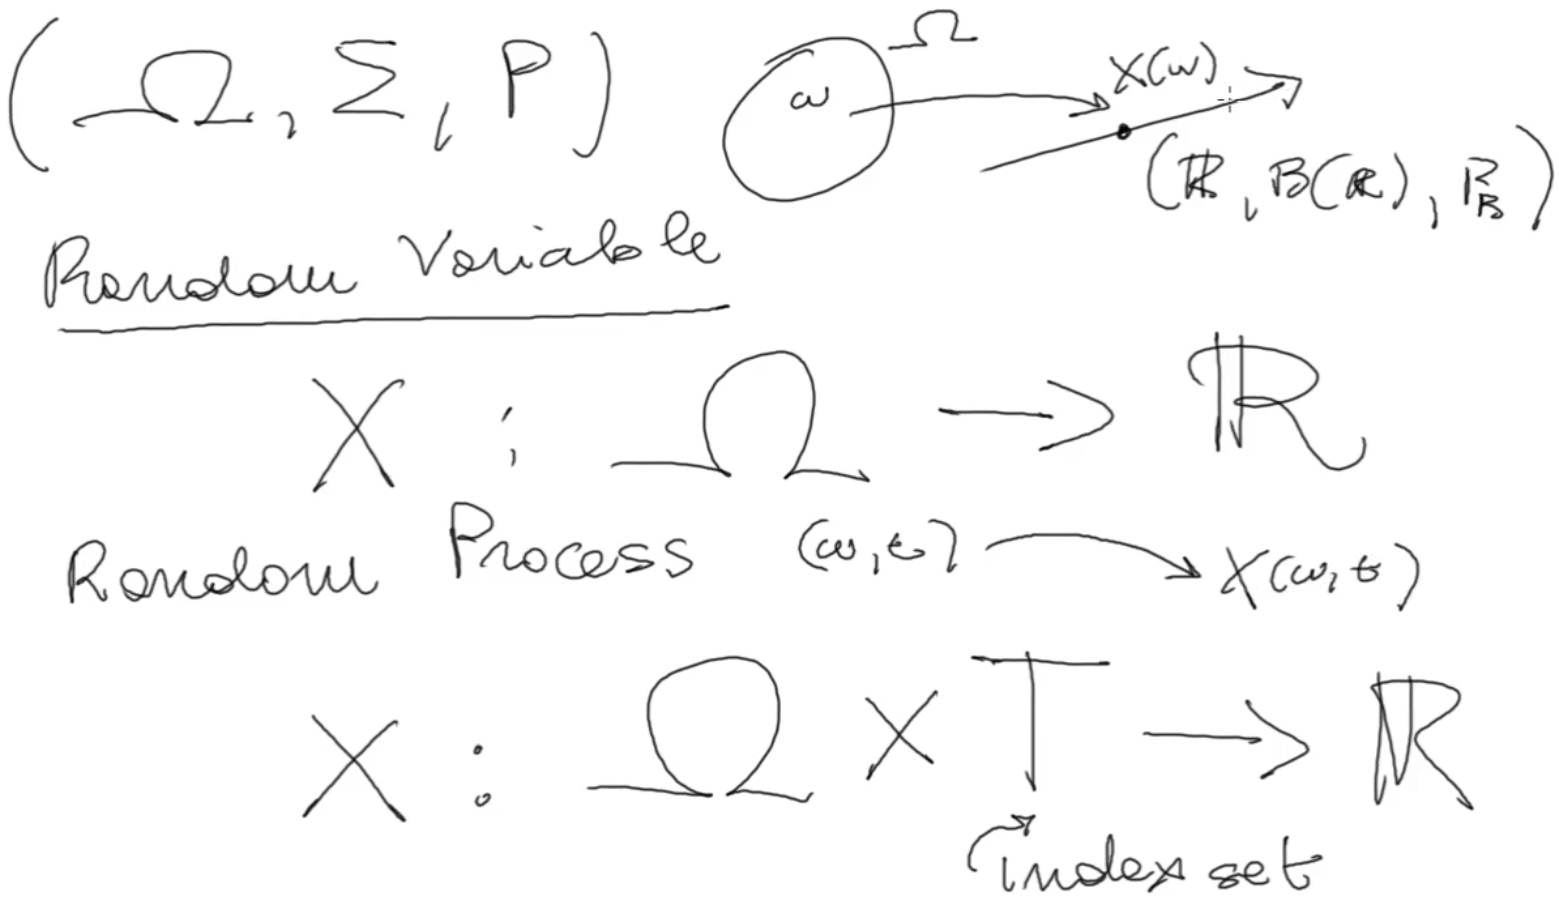 (Ω, Σ, P)
Ω
ω
X(ω)
(ℝ, B(ℝ), P_B)
Random Variable
X : Ω → ℝ
Random Process (ω, t) → X(ω, t)
X : Ω × T → ℝ
index set